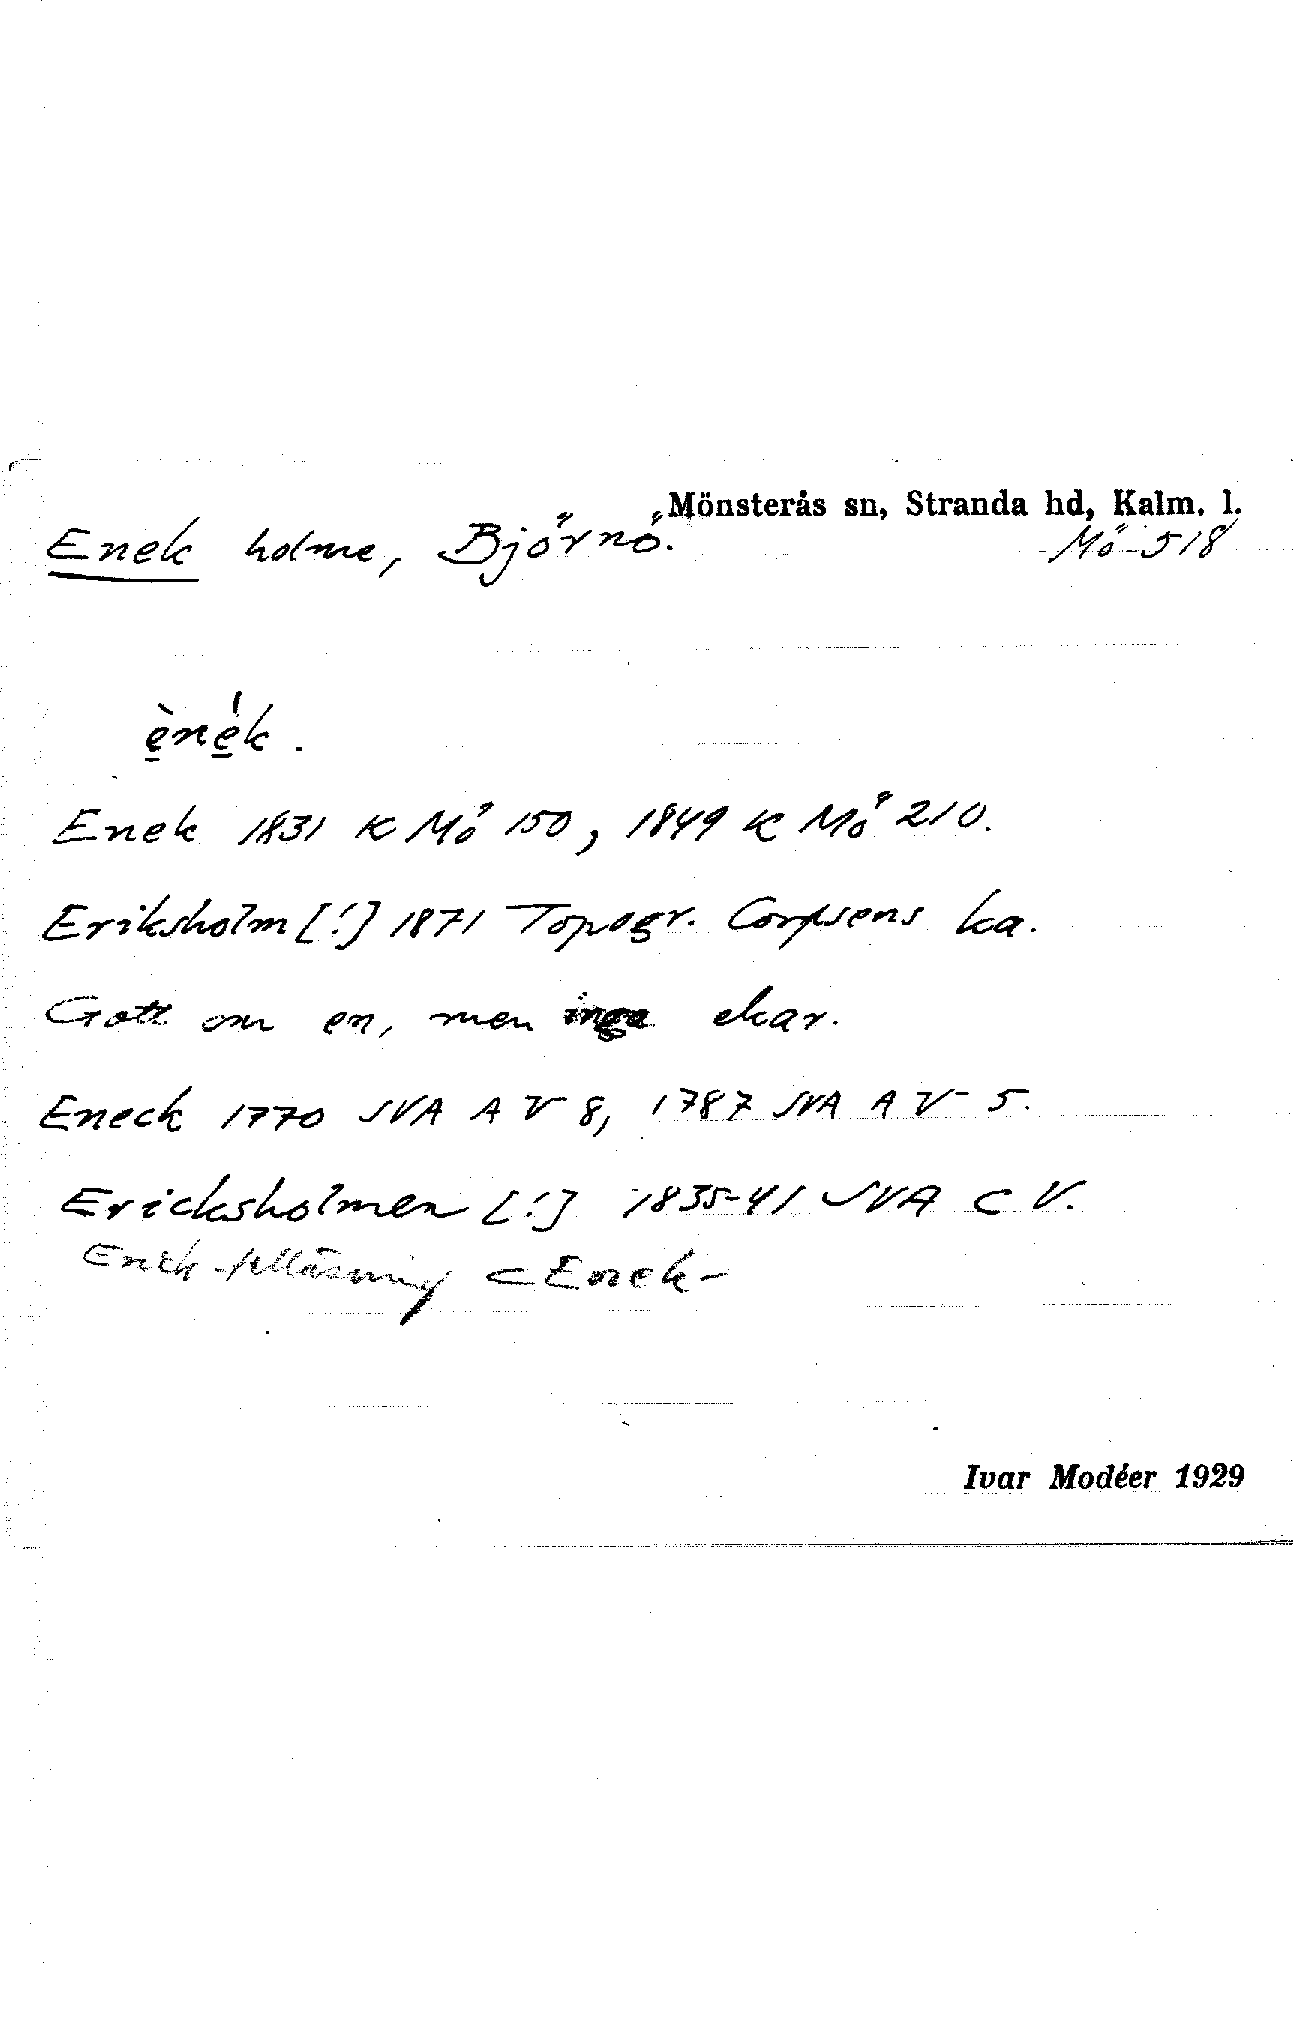 Mönsterås sn, Stranda hd, Kalm. l.
Enek holme, Björnö.
Mö 518
ènék.
Enek 1831 K Mö 150, 1849 K Mö 210.
Eriksholm [!] 1871 Topogr. Corpsens ka.
Gott om en, men inga ekar.
Eneck 1770 SVA A V 8, 1787 SVA A V 5.
Ericksholmen [!] 1835-41 SVA C V.
Erick- felläsning < Enek-
Ivar Modéer 1929